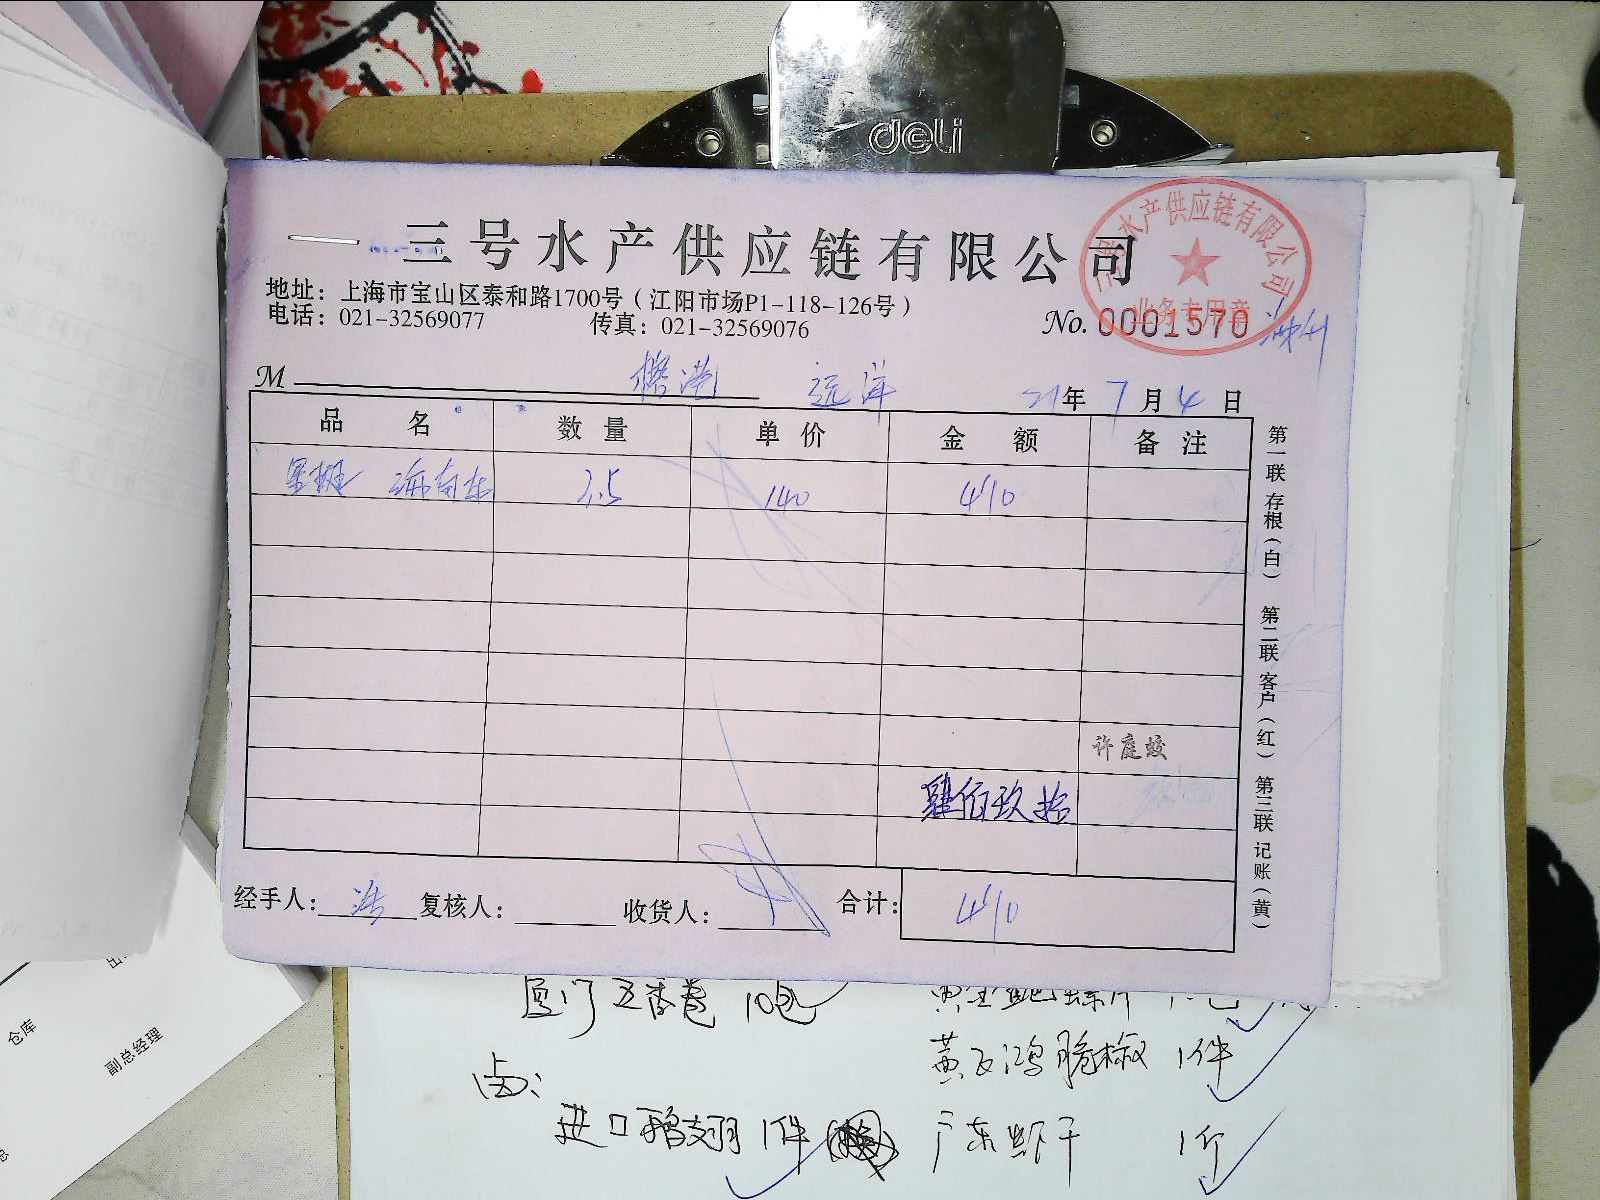 deli
三号水产供应链有限公司
三号水产供应链有限公司
业务专用章
地址：上海市宝山区泰和路1700号（江阳市场P1-118-126号）
电话：021-32569077 传真：021-32569076
No. 0001570
M 远洋 21年 7月 4日
品名 数量 单价 金额 备注
3.5 140 490
许庭蛟
肆佰玖拾
经手人： 复核人： 收货人： 合计： 490
第一联 存根（白） 第二联 客户（红） 第三联 记账（黄）
厦门五香卷 10包
黄瓦鸿脆椒 1件
卤：
进口鹅翅 1件 广东虾干 1斤
仓库
副总经理